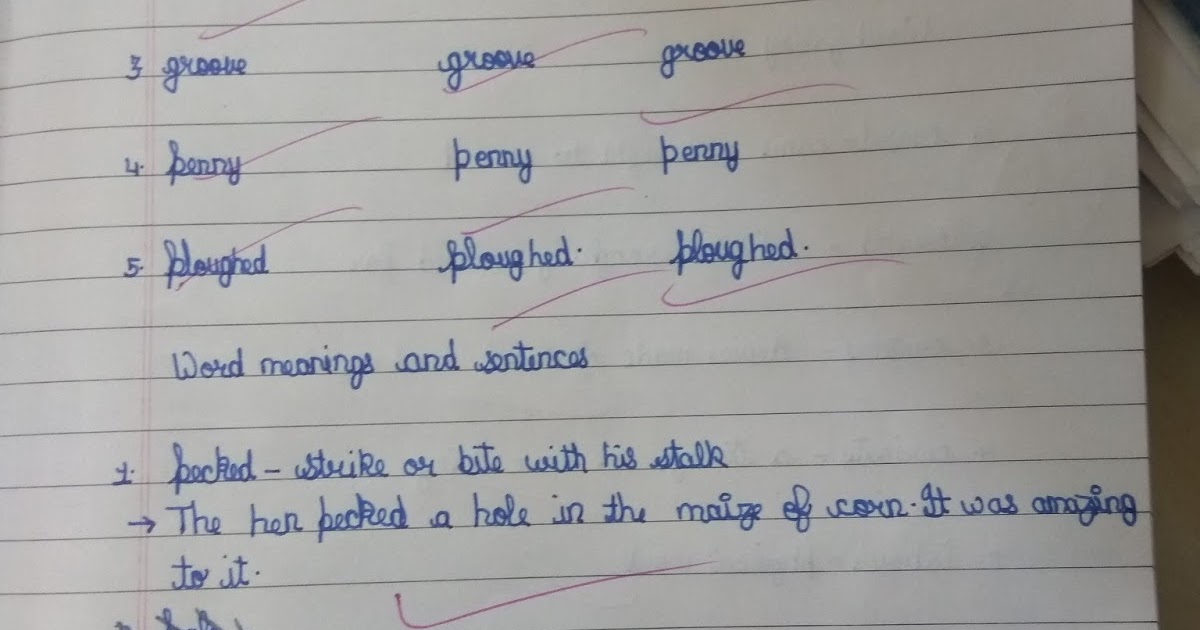 3 groove groove groove
4. penny penny penny
5. ploughed ploughed. ploughed.
Word meanings and sentences
1. pecked – strike or bite with his stalk
→ The hen pecked a hole in the maize of corn. It was amazing
to it.